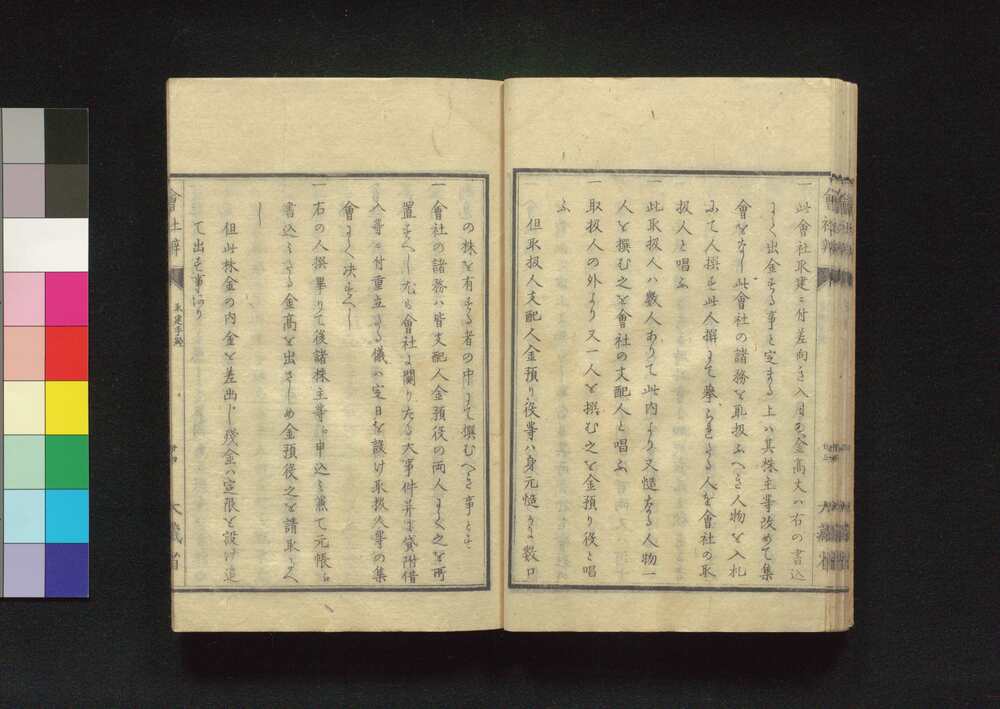 一此會社取建ニ付差向き入用の金高丈ハ右の書込
にて出金する事と定まる上ハ其株主等改めて集
會をなし此會社の諸務を取扱ふへき人物を入札
にて人撰す此人撰にて挙られたる人を會社の取
扱人と唱ふ
一此取扱人ハ数人ありて此内より又慥なる人物一
人を撰む之を會社の支配人と唱ふ
一取扱人の外より又一人を撰む之を金預り役と唱
ふ
但取扱人支配人金預り役等ハ身元慥にて数口
の株を有する者の中にて撰むへき事とす
一會社の諸務ハ皆支配人金預役の両人にて之を所
置すへし尤も會社に關りたる大事件并に貸附借
入等ニ付重立たる儀ハ定日を設け取扱人等の集
會にて決すへし
一右の人撰畢りて後諸株主等に申込み兼て元帳に
書込みたる金高を出さしめ金預役之を請取るへ
し
但此株金の内金を差出し残金ハ定限を設け追
て出す事あり
會社辨
大藏省